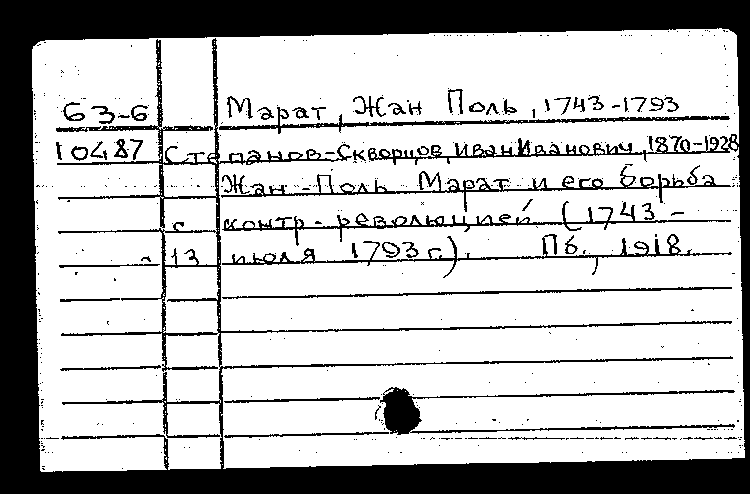 63-6 Марат, Жан Поль, 1743-1793
10487 Степанов-Скворцов, Иван Иванович, 1870-1928
Жан-Поль Марат и его борьба
с контр-революцией (1743 -
- 13 июля 1793 г.). Пб., 1918.